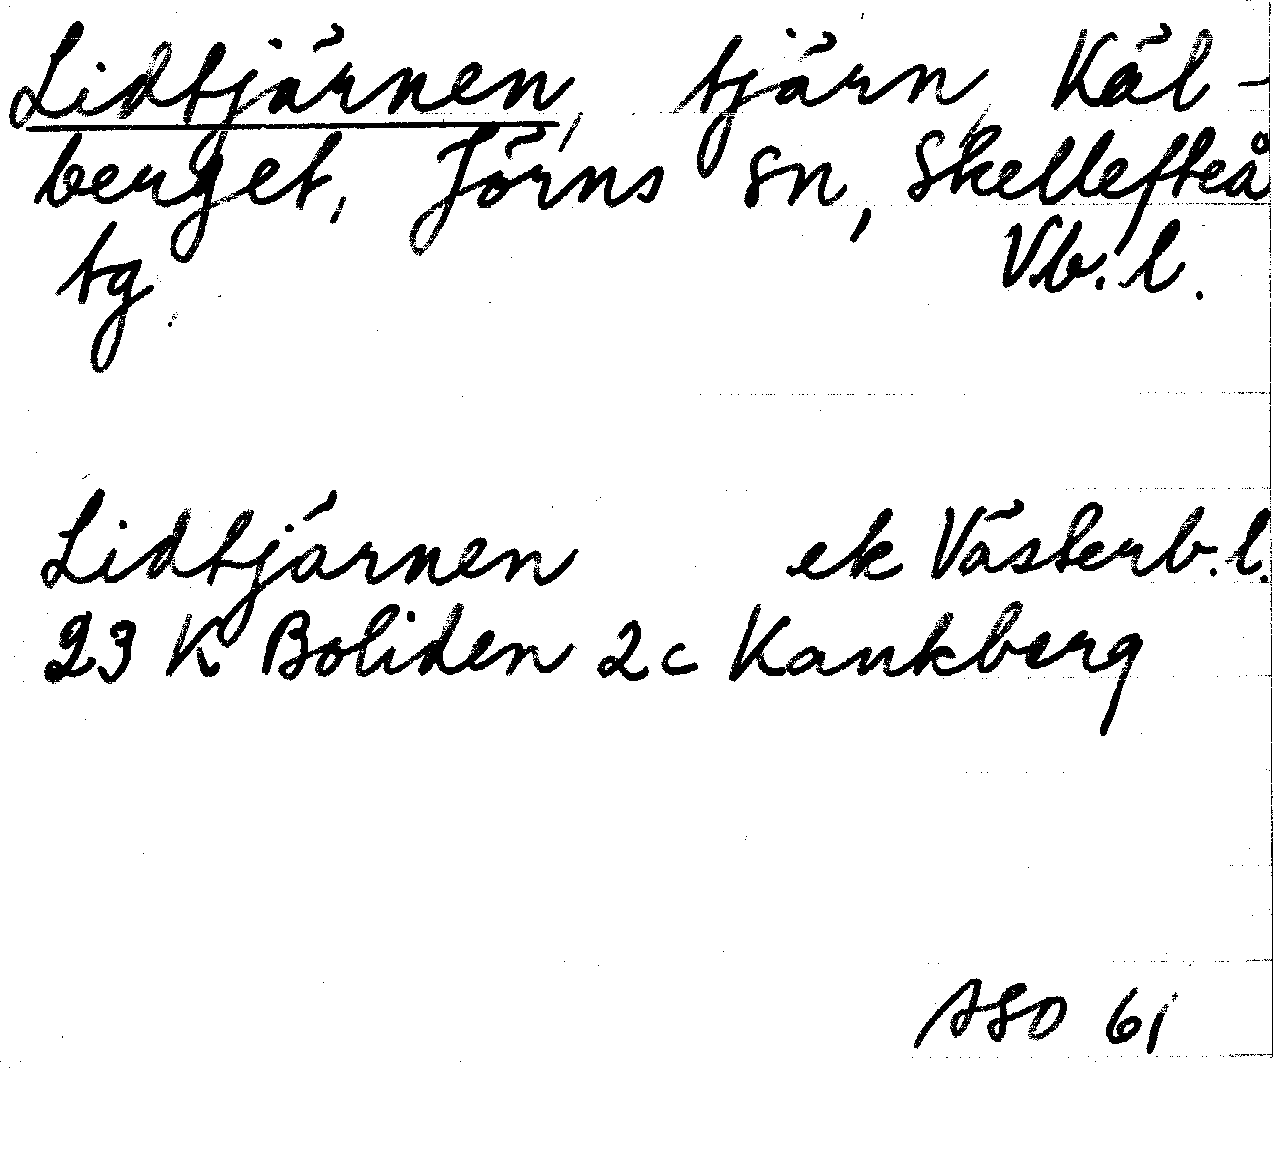 Lidtjärnen, tjärn, Käl-
berget, Jörns sn, Skellefteå
tg Vb. l.
Lidtjärnen ek Västerb. l.
23 K Boliden 2c Kankberg
ASO 61